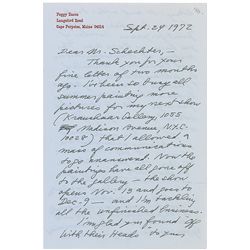 Peggy Bacon
Langsford Road
Cape Porpoise, Maine 04014
Sept. 24 1972
Dear Mr. Schechter, –
Thank you for your
fine letter of two months
ago. I've been so busy all
summer painting more
pictures for my next show
(Kraushaar Gallery, 1055
Madison Avenue, NYC
10028) that I allowed a
mass of communications
to go unanswered. Now the
paintings have all gone off
to the gallery — the show
opens Nov. 13 and goes to
Dec. 9 — and I'm tackling
all the unfinished business.
I'm glad you found Off
With Their Heads to your